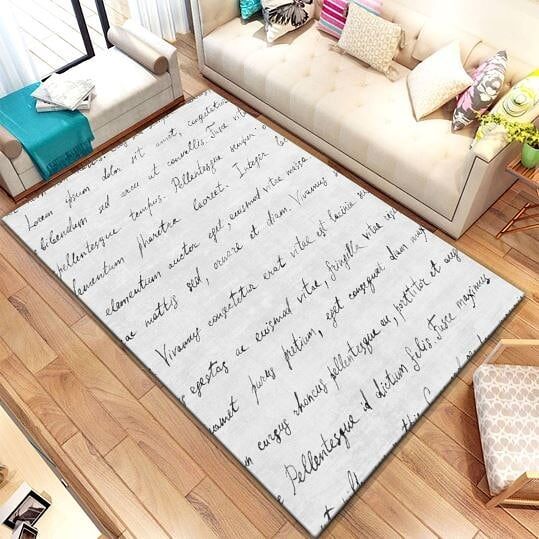 Lorem ipsum dolor sit amet, consectetur
bibendum sed arcu ut convallis. Fusce vitae
pellentesque tempus. Pellentesque semper
elementum pharetra laoreet. Integer
elementum auctor eget, euismod vitae massa
ac mattis sed, ornare et diam. Vivamus
Vivamus consectetur erat vitae est lacinia
egestas ac euismod vitae, fringilla vitae
amet purus pretium, eget consequat diam
cursus rhoncus pellentesque eu, porttitor et
Pellentesque id dictum felis. Fusce maximus